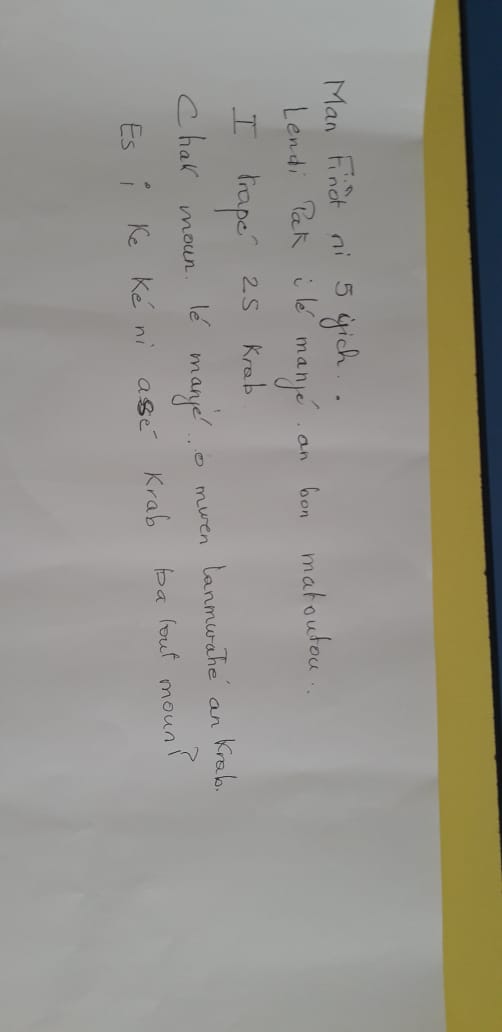 Man Finot ni 5 yich..
Lendi Pak i lé manjé an bon matoutou..
I trapé 25 krab
Chak moun lé manjé.. o mwen lanmwatié an krab.
Es i ke ké ni asé krab ba tout moun?